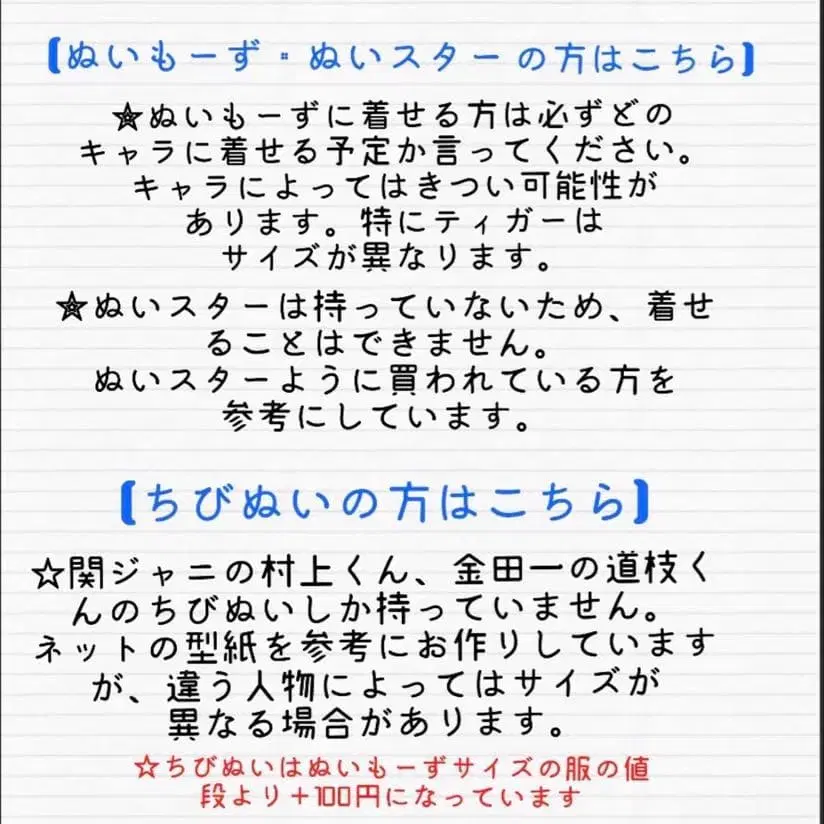 【ぬいもーず・ぬいスターの方はこちら】
☆ぬいもーずに着せる方は必ずどの
キャラに着せる予定か言ってください。
キャラによってはきつい可能性が
あります。特にティガーは
サイズが異なります。
☆ぬいスターは持っていないため、着せ
ることはできません。
ぬいスターように買われている方を
参考にしています。
【ちびぬいの方はこちら】
☆関ジャニの村上くん、金田一の道枝く
んのちびぬいしか持っていません。
ネットの型紙を参考にお作りしています
が、違う人物によってはサイズが
異なる場合があります。
☆ちびぬいはぬいもーずサイズの服の値
段より＋100円になっています